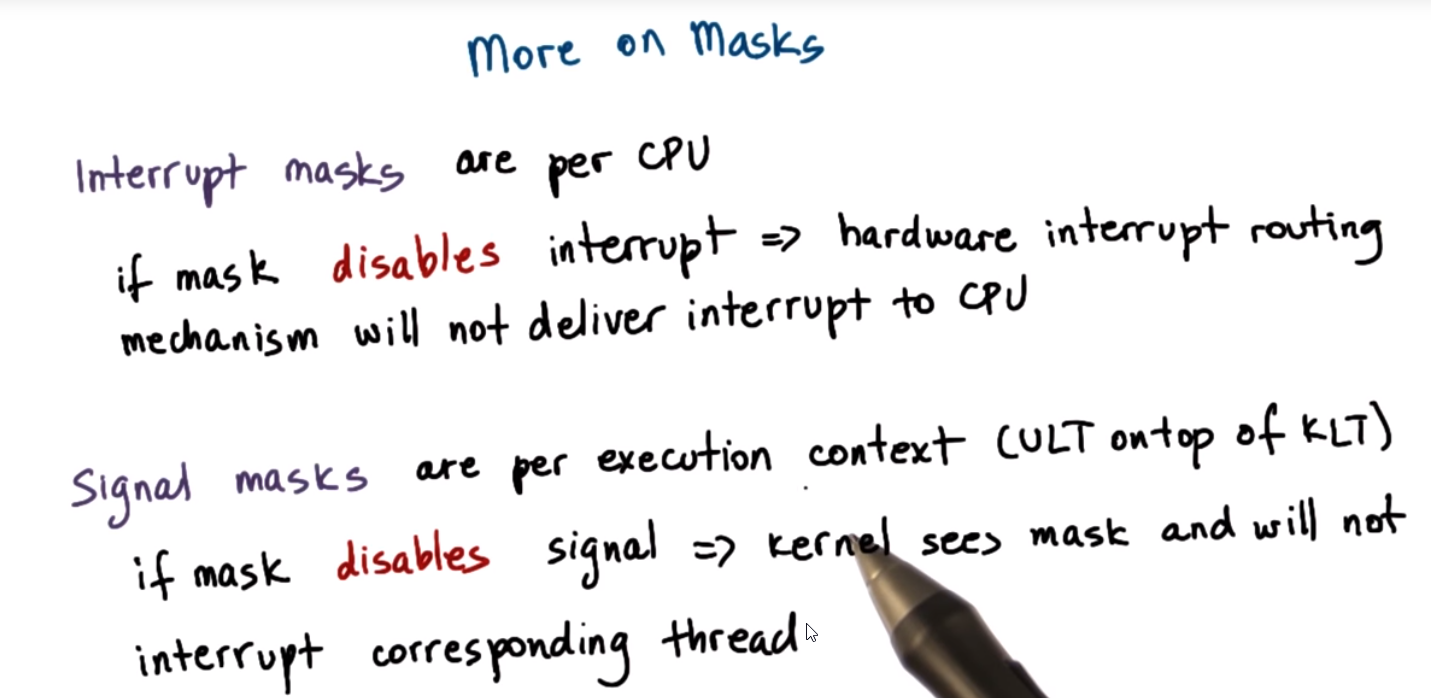 More on Masks
Interrupt masks are per CPU
if mask disables interrupt => hardware interrupt routing
mechanism will not deliver interrupt to CPU
Signal masks are per execution context (ULT on top of KLT)
if mask disables signal => kernel sees mask and will not
interrupt corresponding thread